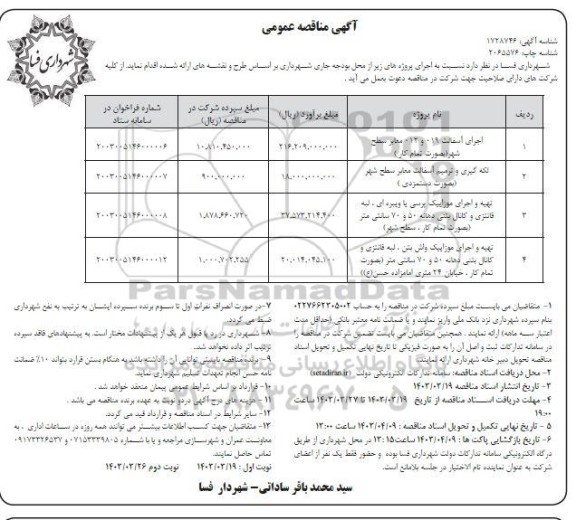 آگهی مناقصه عمومی
شهرداری فسا
شناسه آگهی: ۱۷۲۸۷۴۶
شناسه چاپ: ۲۰۶۵۵۷۶
شهرداری فسا در نظر دارد نسبت به اجرای پروژه های زیر از محل بودجه جاری شهرداری بر اساس طرح و نقشه های ارائه شده اقدام نماید. از کلیه
شرکت های دارای صلاحیت جهت شرکت در مناقصه دعوت بعمل می آید.
ردیف نام پروژه مبلغ برآورد (ریال) مبلغ سپرده شرکت در مناقصه (ریال) شماره فراخوان در سامانه ستاد
۱ اجرای آسفالت ۰-۱۹ و ۰-۱۲ معابر سطح شهر(بصورت تمام کار) ۲۱۶,۲۰۹,۰۰۰,۰۰۰ ۱۰,۸۱۰,۴۵۰,۰۰۰ ۲۰۰۳۰۰۵۱۴۶۰۰۰۰۰۶
۲ لکه گیری و ترمیم آسفالت معابر سطح شهر (بصورت دستمزدی) ۱۸,۰۰۰,۰۰۰,۰۰۰ ۹۰۰,۰۰۰,۰۰۰ ۲۰۰۳۰۰۵۱۴۶۰۰۰۰۰۷
۳ تهیه و اجرای موزاییک پرسی یا ویبره ای ، لبه فانتزی و کانال بتنی دهانه ۵۰ و ۷۰ سانتی متر (بصورت تمام کار ، سطح شهر) ۳۷,۵۷۳,۲۱۴,۴۰۰ ۱,۸۷۸,۶۶۰,۷۲۰ ۲۰۰۳۰۰۵۱۴۶۰۰۰۰۰۸
۴ تهیه و اجرای موزاییک واش بتن ، لبه فانتزی و کانال بتنی دهانه ۵۰ و ۷۰ سانتی متر (بصورت تمام کار ، خیابان ۲۴ متری امامزاده حسن(ع)) ۲۰,۰۱۴,۰۴۵,۱۰۰ ۱,۰۰۰,۷۰۲,۲۵۵ ۲۰۰۳۰۰۵۱۴۶۰۰۰۰۱۲
۱- متقاضیان می بایست مبلغ سپرده شرکت در مناقصه را به حساب ۰۲۲۷۶۶۲۳۰۵۰۰۲
بنام سپرده شهرداری نزد بانک ملی واریز نمایند و یا ضمانت نامه معتبر بانکی (حداقل مدت
اعتبار سه ماهه) ارائه نمایند . همچنین متقاضیان می بایست تضمین شرکت در مناقصه را
در سامانه تدارکات ثبت و اصل آن را به صورت فیزیکی تا تاریخ نهایی تکمیل و تحویل اسناد
مناقصه تحویل دبیر خانه شهرداری ارائه نمایند.
۲- محل دریافت اسناد مناقصه: سامانه تدارکات الکترونیکی دولت (setadiran.ir)
۳- تاریخ انتشار اسناد مناقصه ۱۴۰۳/۰۳/۱۹
۴- مهلت دریافت اسناد مناقصه از تاریخ ۱۴۰۳/۰۳/۱۹ تا ۱۴۰۳/۰۳/۲۷ ساعت
۱۹:۰۰
۵- تاریخ نهایی تکمیل و تحویل اسناد مناقصه : ۱۴۰۳/۰۴/۰۹ ساعت ۱۳:۰۰
۶- تاریخ بازگشایی پاکت ها : ۱۴۰۳/۰۴/۰۹ ساعت ۱۳:۱۵ در محل شهرداری از طریق
درگاه الکترونیکی سامانه تدارکات دولت شهرداری فسا بوده و حضور فقط یک نفر از اعضای
شرکت به عنوان نماینده تام الاختیار در جلسه بلامانع است.
۷- در صورت انصراف نفرات اول تا سوم برنده سپرده ایشان به ترتیب به نفع شهرداری
ضبط می گردد.
۸- شهرداری در رد یا قبول هر یک از پیشنهادات مختار است. به پیشنهادهای فاقد سپرده
ترتیب اثر داده نخواهد شد.
۹- برنده مناقصه بایستی توانایی آن را داشته باشد به هنگام بستن قرارد بتواند ۱۰٪ ضمانت
نامه حسن انجام تعهدات تسلیم شهرداری نماید.
۱۰- قرارداد بر اساس شرایط عمومی پیمان منعقد خواهد شد.
۱۱- هزینه های درج آگهی در دو نوبت به عهده برنده مناقصه می باشد.
۱۲- سایر شرایط در اسناد مناقصه و قرارداد قید می گردد.
۱۳- متقاضیان جهت کسب اطلاعات بیشتر می توانند همه روزه در ساعات اداری ، به
معاونت عمران و شهرسازی مراجعه و یا با شماره ۰۷۱۵۳۳۳۹۸۰۵ و ۰۹۱۷۳۳۲۶۵۳۷
تماس حاصل نمایند.
نوبت اول : ۱۴۰۳/۰۳/۱۹ نوبت دوم ۱۴۰۳/۰۳/۲۶
سید محمد باقر ساداتی- شهردار فسا
ParsNamadData